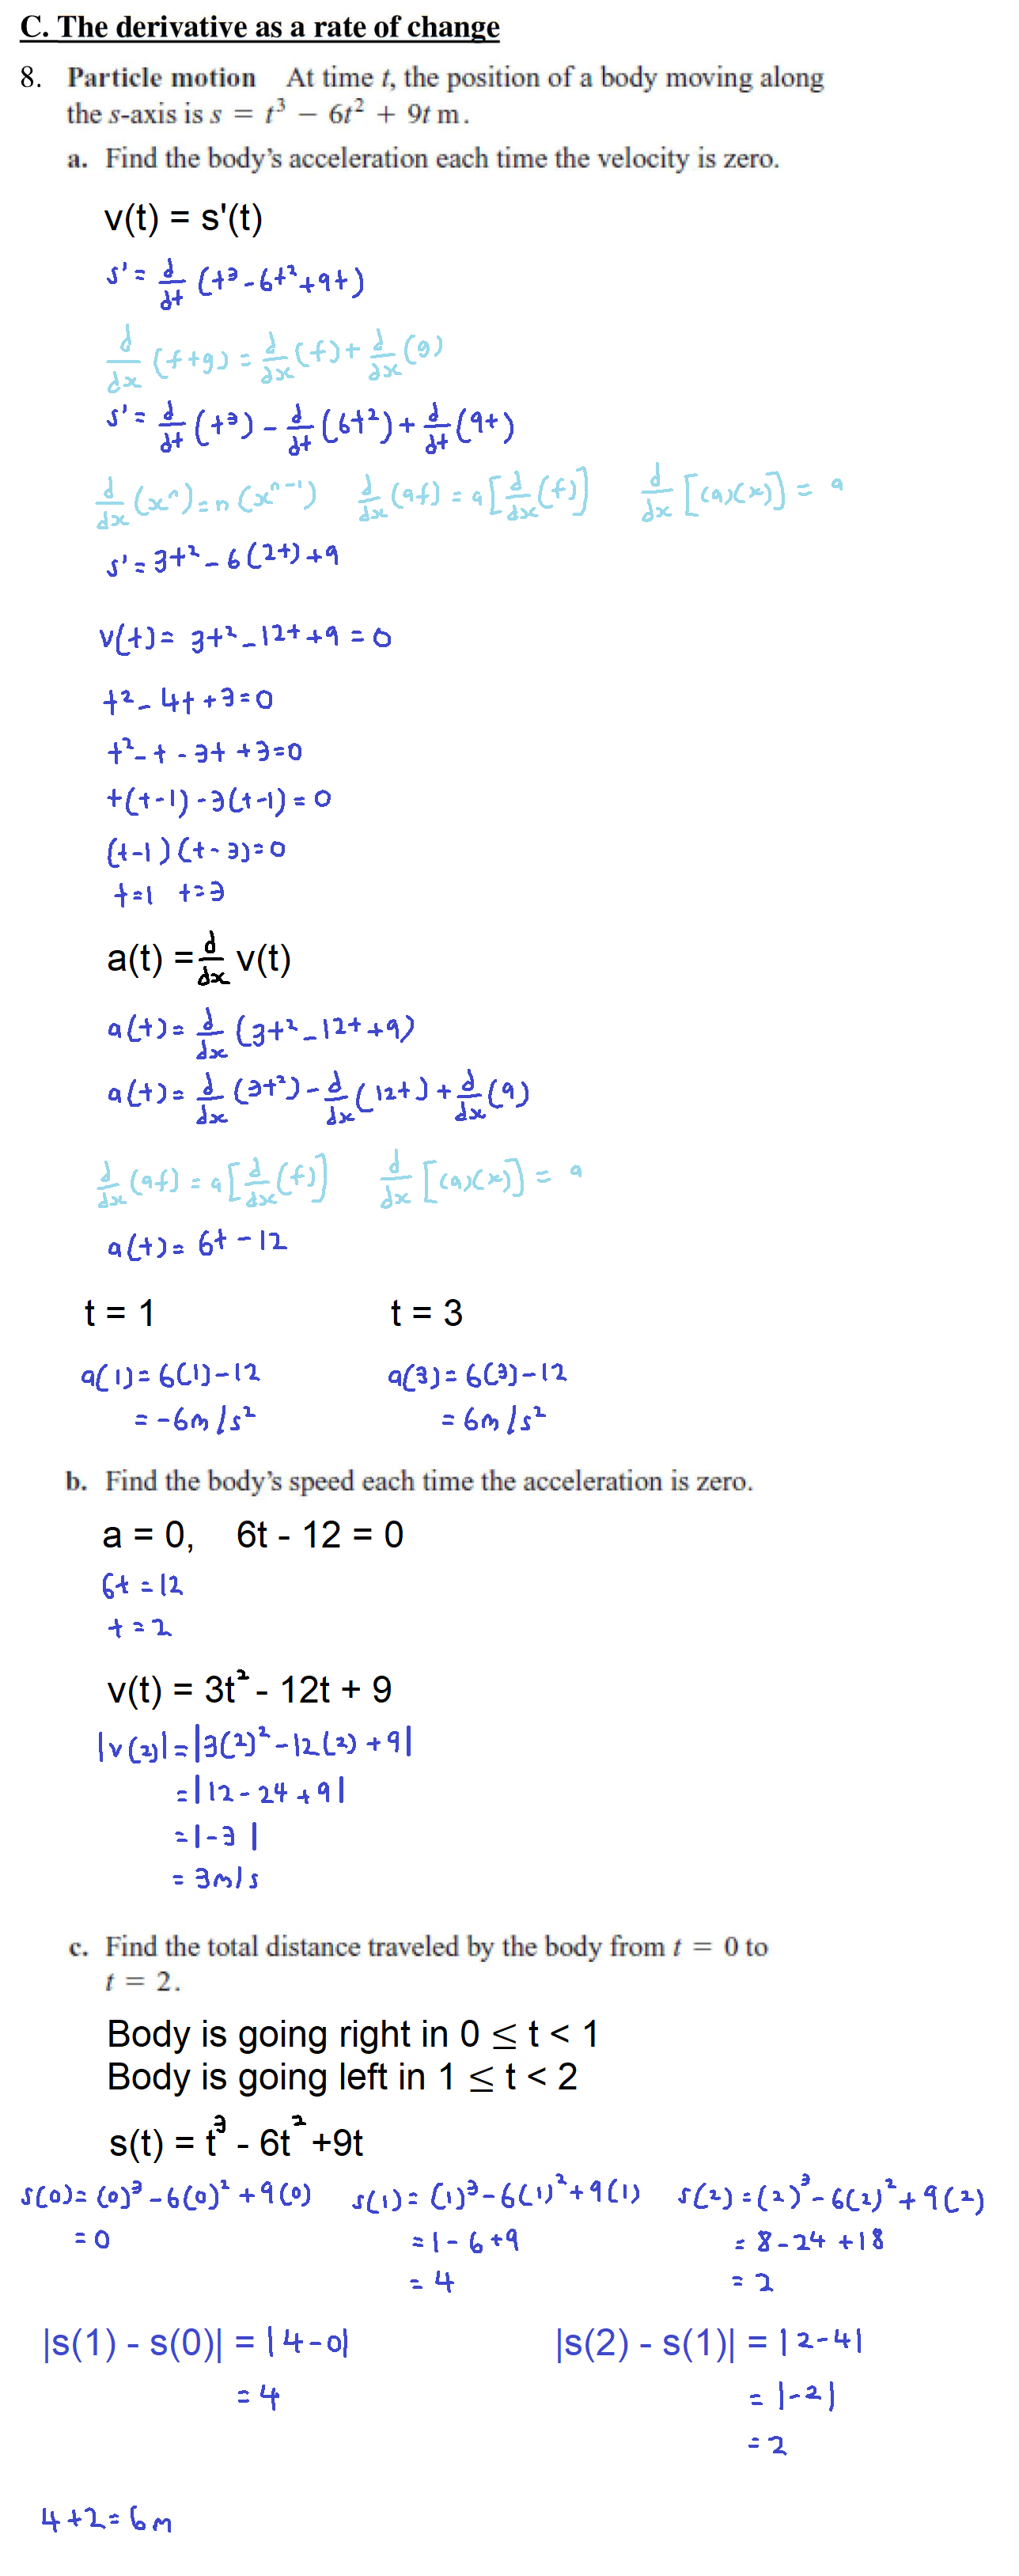 C. The derivative as a rate of change
8. Particle motion At time t, the position of a body moving along
the s-axis is s = t³ − 6t² + 9t m.
a. Find the body's acceleration each time the velocity is zero.
v(t) = s'(t)
s' = d/dt (t³ - 6t² + 9t)
d/dx (f+g) = d/dx (f) + d/dx (g)
s' = d/dt (t³) - d/dt (6t²) + d/dt (9t)
d/dx (xⁿ) = n (xⁿ⁻¹) d/dx (af) = a [d/dx (f)] d/dx [(a)(x)] = a
s' = 3t² - 6(2t) + 9
v(t) = 3t² - 12t + 9 = 0
t² - 4t + 3 = 0
t² - t - 3t + 3 = 0
t(t-1) - 3(t-1) = 0
(t-1)(t-3) = 0
t=1 t=3
a(t) = d/dx v(t)
a(t) = d/dx (3t² - 12t + 9)
a(t) = d/dx (3t²) - d/dx (12t) + d/dx (9)
d/dx (af) = a [d/dx (f)] d/dx [(a)(x)] = a
a(t) = 6t - 12
t = 1 t = 3
a(1) = 6(1) - 12 a(3) = 6(3) - 12
= -6m/s² = 6m/s²
b. Find the body's speed each time the acceleration is zero.
a = 0, 6t - 12 = 0
6t = 12
t = 2
v(t) = 3t² - 12t + 9
|v(2)| = |3(2)² - 12(2) + 9|
= |12 - 24 + 9|
= |-3|
= 3m/s
c. Find the total distance traveled by the body from t = 0 to
t = 2.
Body is going right in 0 ≤ t < 1
Body is going left in 1 ≤ t < 2
s(t) = t³ - 6t² +9t
s(0) = (0)³ - 6(0)² + 9(0) s(1) = (1)³ - 6(1)² + 9(1) s(2) = (2)³ - 6(2)² + 9(2)
= 0 = 1 - 6 + 9 = 8 - 24 + 18
= 4 = 2
|s(1) - s(0)| = |4-0| |s(2) - s(1)| = |2-4|
= 4 = |-2|
= 2
4 + 2 = 6m